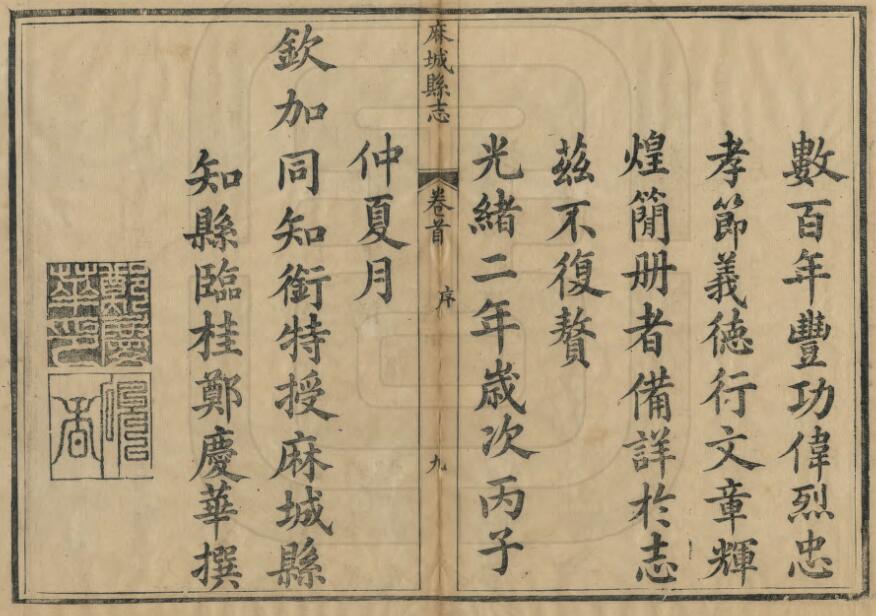 數百年豐功偉烈忠
孝節義德行文章輝
煌簡册者備詳於志
茲不復贅
光緒二年歲次丙子
麻城縣志
卷首
序
九
仲夏月
欽加同知銜特授麻城縣
知縣臨桂鄭慶華撰
鄭慶華印